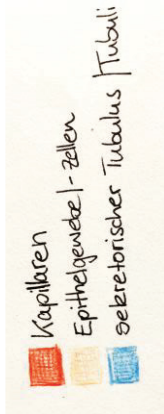 Kapillaren
Epithelgewebe/-zellen
sekretorischer Tubulus/Tubuli